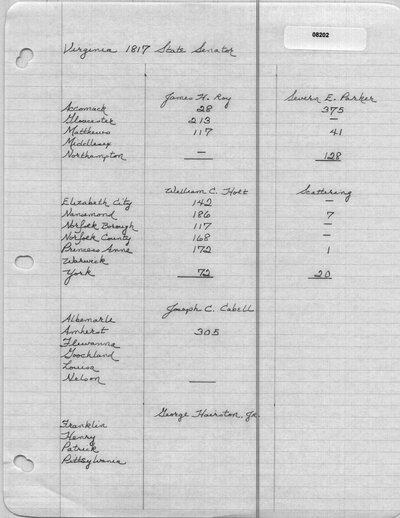 08202
Virginia 1817 State Senator
James H. Roy Severn E. Parker
Accomack 28 375
Gloucester 213 —
Matthews 117 41
Middlesex
Northampton — 128
William C. Holt Scattering
Elizabeth City 142 —
Nansemond 186 7
Norfolk Borough 117 —
Norfolk County 168 —
Princess Anne 172 1
Warwick
York 72 20
Joseph C. Cabell
Albemarle
Amherst 305
Fluvanna
Goochland
Louisa
Nelson
George Hairston, Jr.
Franklin
Henry
Patrick
Pittsylvania